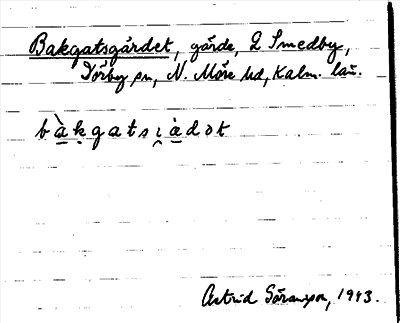 Bakgatsgärdet, gärde, L Smedby,
Dörby sn, N. Möre hd, Kalm. län.
bàkgatsi̯àdət
Astrid Göransson, 1943.